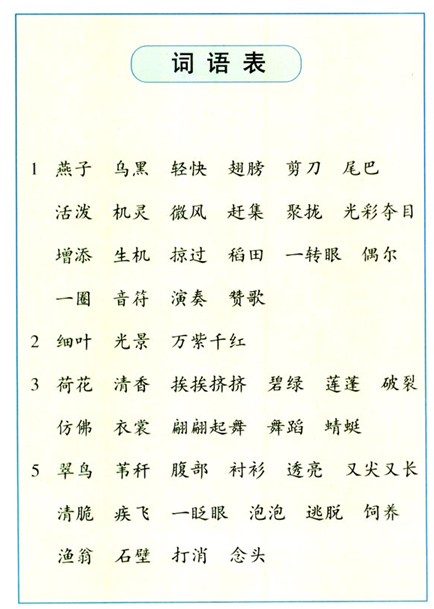 词语表
1 燕子 乌黑 轻快 翅膀 剪刀 尾巴
活泼 机灵 微风 赶集 聚拢 光彩夺目
增添 生机 掠过 稻田 一转眼 偶尔
一圈 音符 演奏 赞歌
2 细叶 光景 万紫千红
3 荷花 清香 挨挨挤挤 碧绿 莲蓬 破裂
仿佛 衣裳 翩翩起舞 舞蹈 蜻蜓
5 翠鸟 苇秆 腹部 衬衫 透亮 又尖又长
清脆 疾飞 一眨眼 泡泡 逃脱 饲养
渔翁 石壁 打消 念头